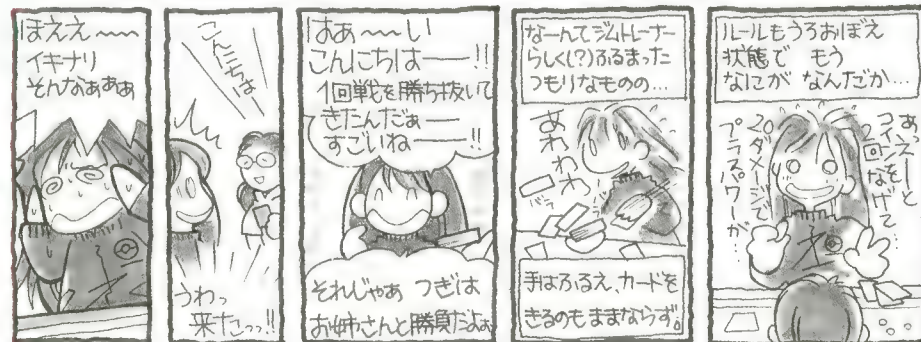 ほええ～～
イキナリ
そんなぁぁぁ
こんにちは
うわっ
来たっっ!!
はぁ～～い
こんにちはー!!
1回戦を勝ち抜いて
きたんだぁー
すごいねー!!
それじゃあ つぎは
お姉さんと勝負だよぉ
なーんてジムトレーナー
らしく(?)ふるまった
つもりなものの…
あわわわ
手はふるえ、カードを
きるのもままならず。
ルールもうろおぼえ
状態で もう
なにが なんだか…
あ、えーと
コインを
2回なげて…
20ダメージで
プラスパワーが…